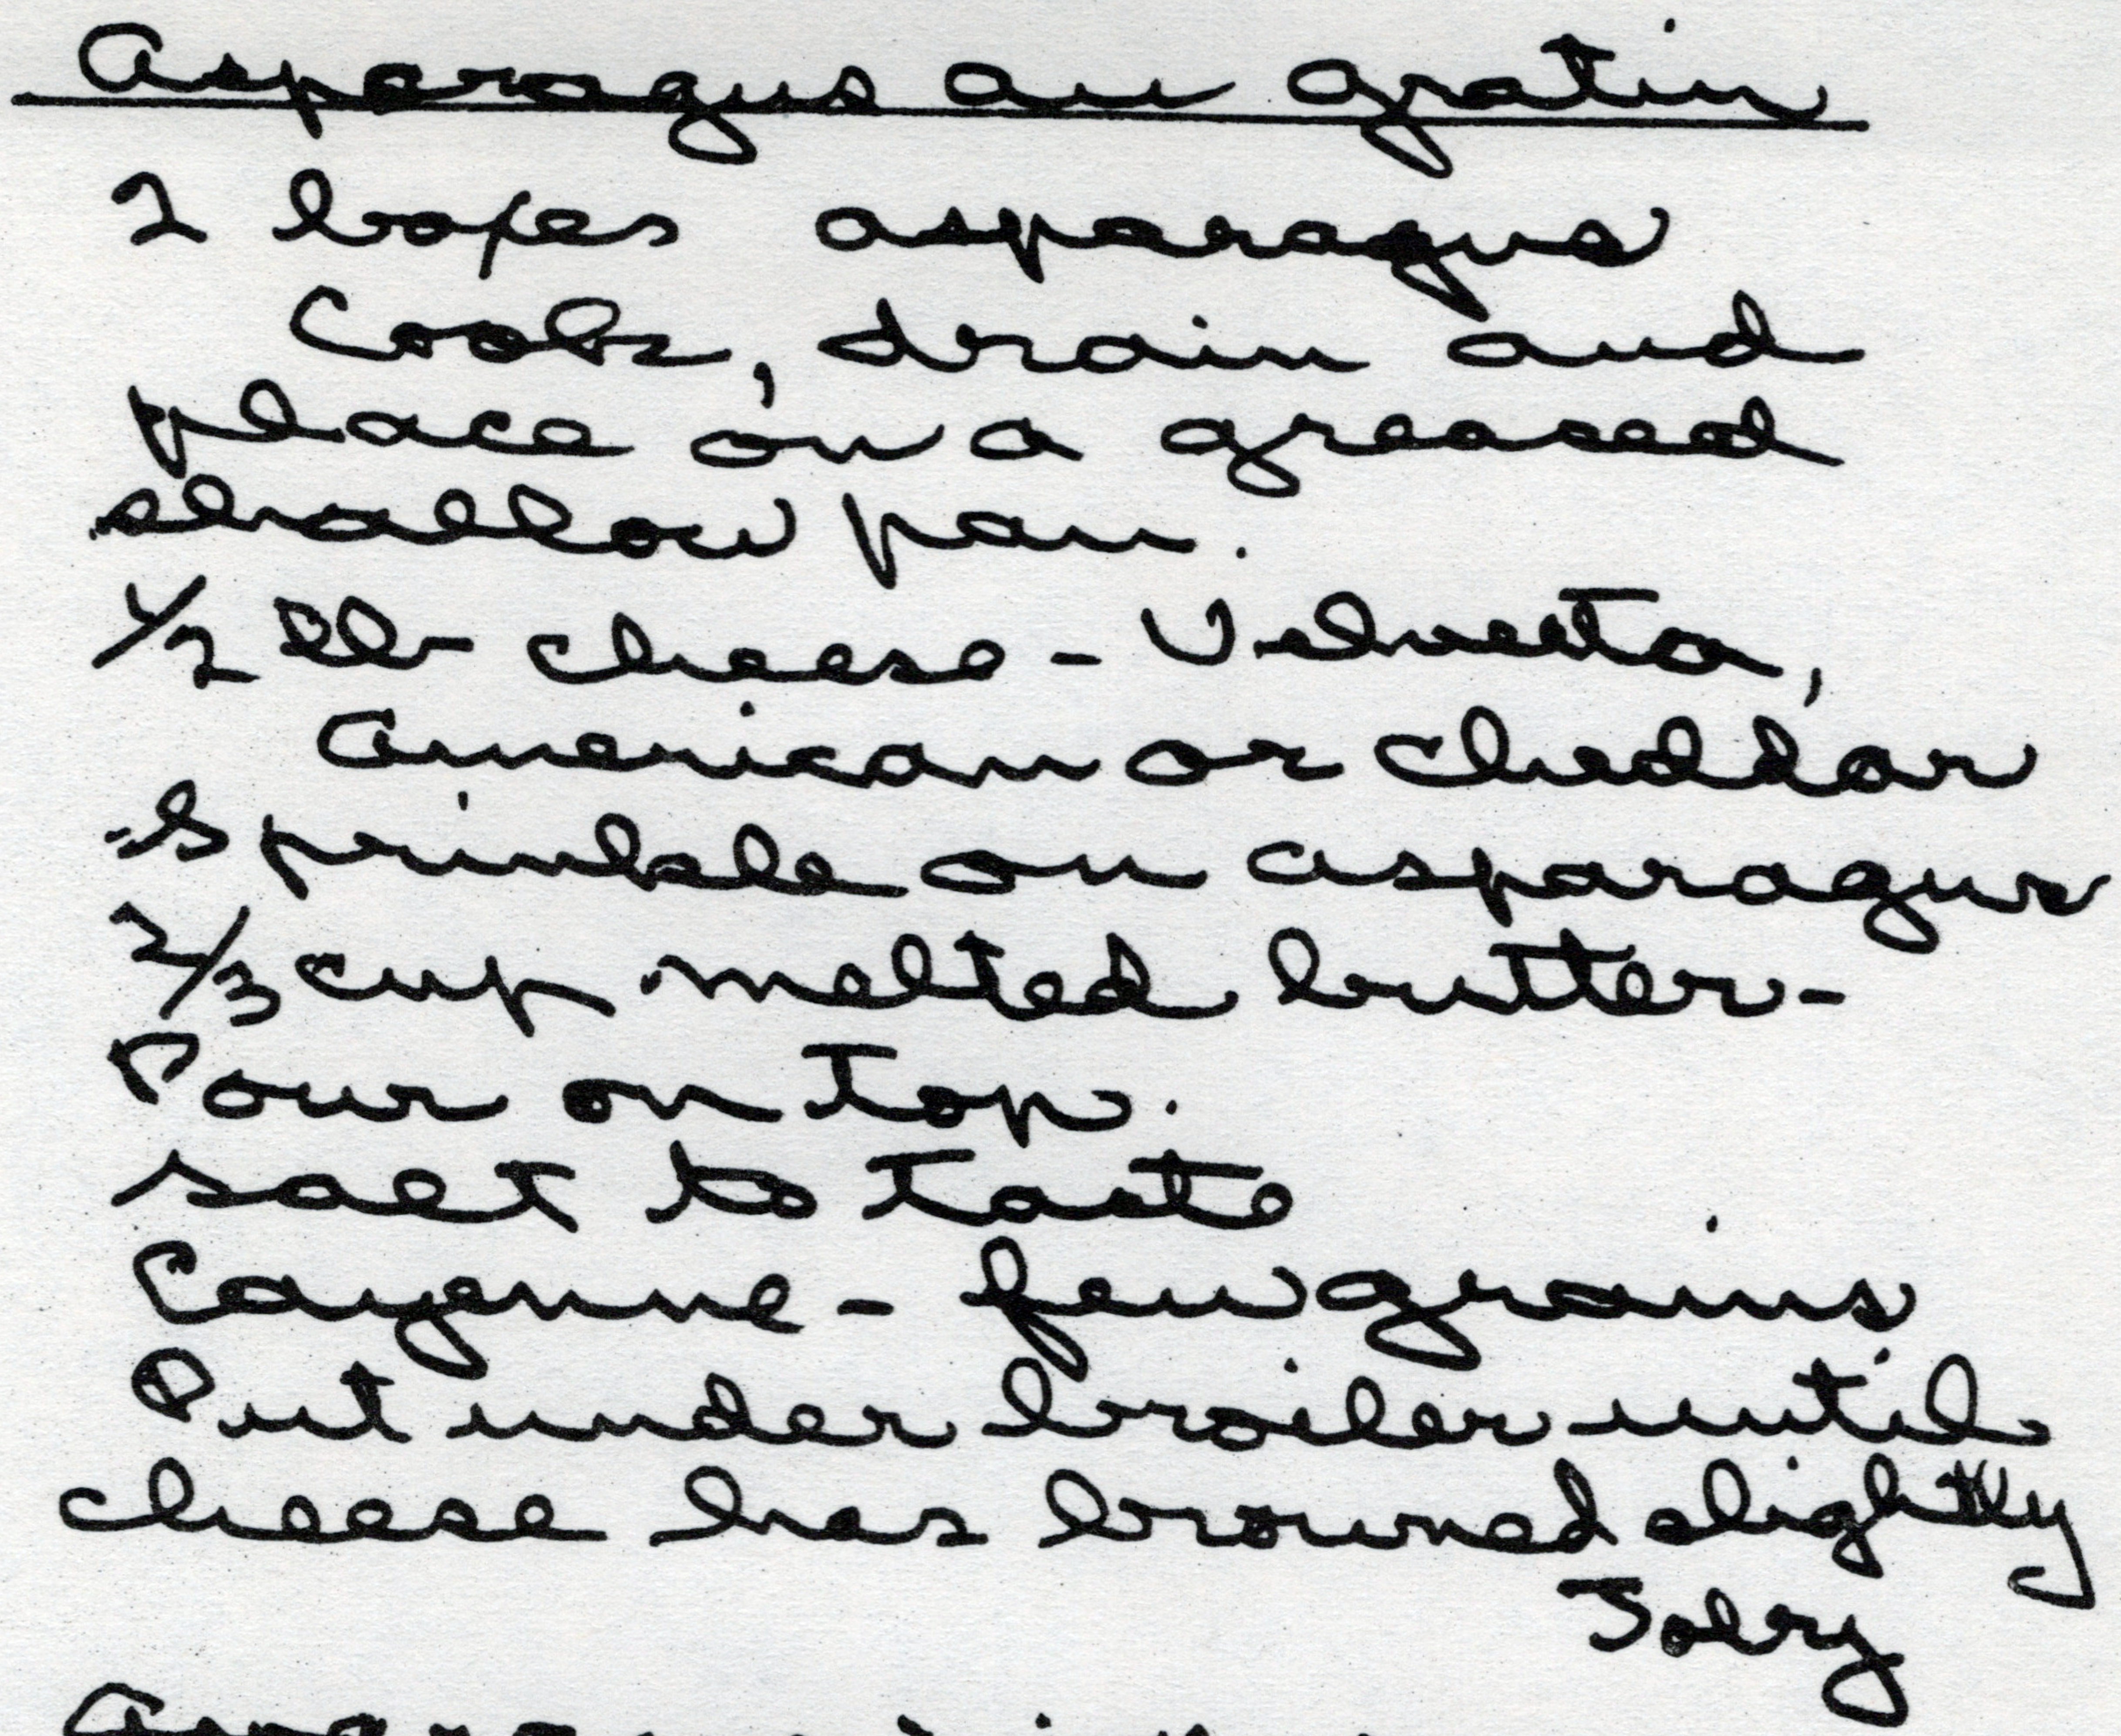 Asparagus au Gratin
2 boxes asparagus
Cook, drain and
place on a greased
shallow pan.
1/2 lb cheese - Velveeta,
American or cheddar
Sprinkle on asparagus
2/3 cup melted butter -
Pour on top.
salt to taste
Cayenne - few grains
Put under broiler until
cheese has browned slightly
Toby